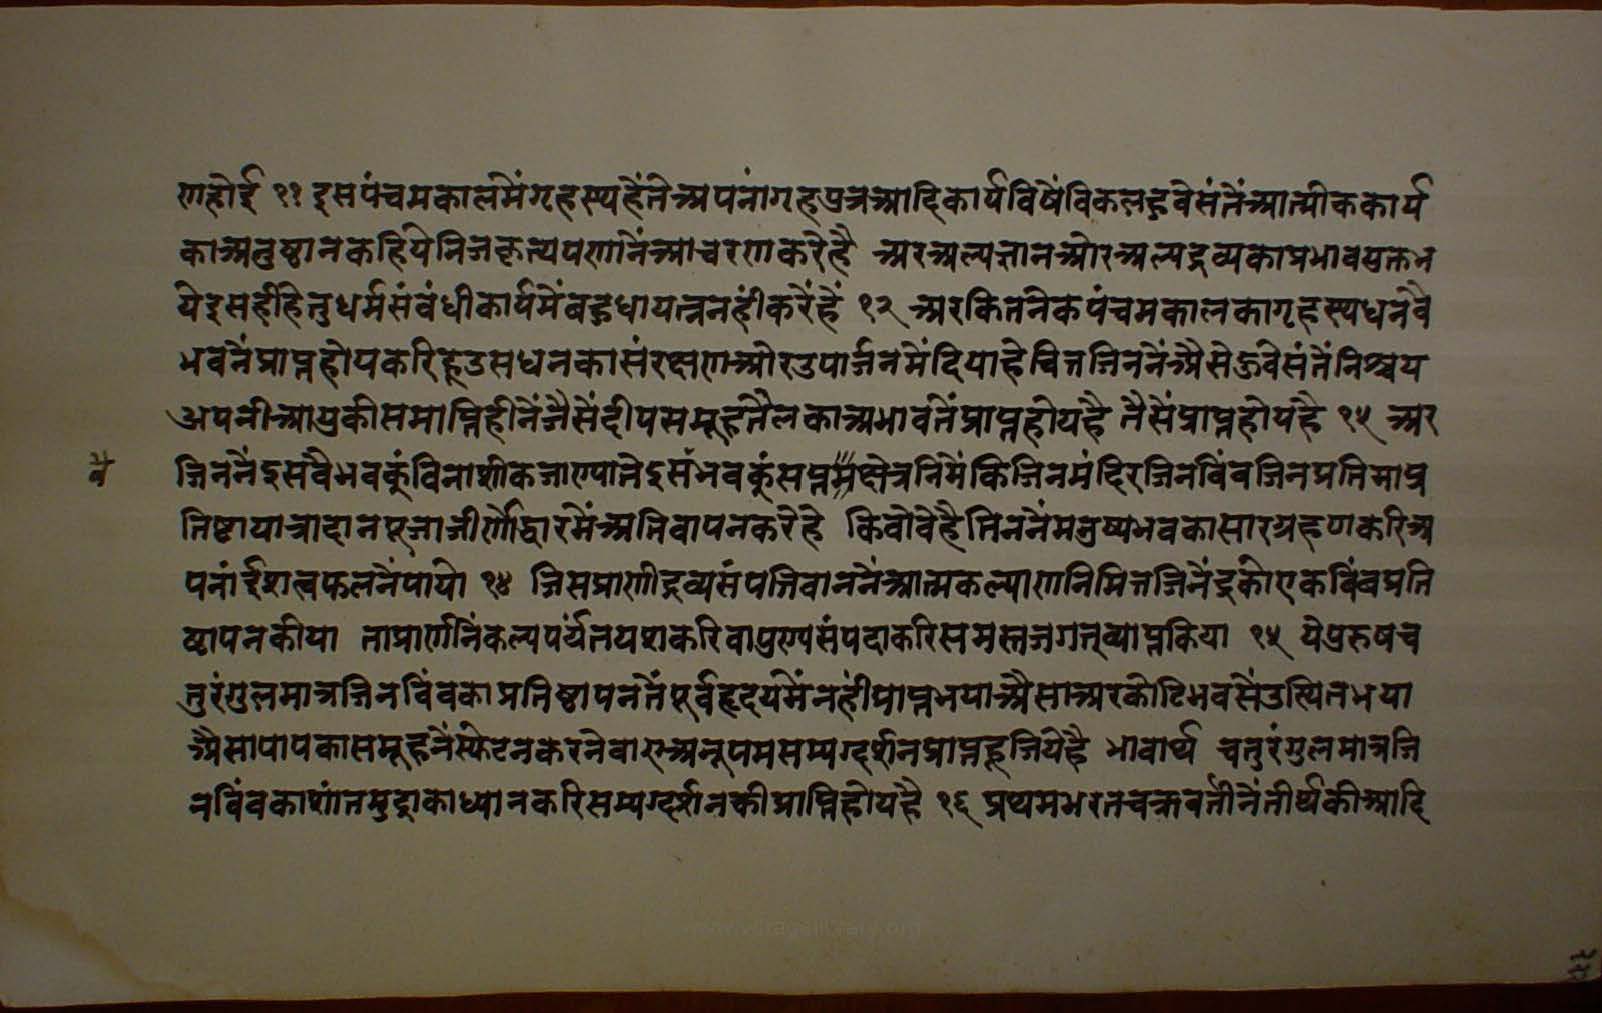 णहोई ११ इसपंचमकालमेंगृहस्थहैंतेअपनांगृहपुत्रआदिकार्यविषैंविकलहुवेसंतैंआत्मीककार्य
काअनुष्ठानकहियेनिजकृत्यपणानेंआचरणकरेहै अरअल्पज्ञानओरअल्पद्रव्यकाप्रभावयुक्तभ
येइसहीहेतुधर्मसंबंधीकार्यमेंबहुधायत्ननहींकरेंहें १२ अरकितनेकपंचमकालकागृहस्थधनवै
भवनैंप्राप्तहोयकरिहूउसधनकासंरक्षणओरउपार्जनमेंदियाहेचित्तजिननेंऐसेहुवेसंतेंनिश्चय
अपनीआयुकीसमाप्तिहीनेंजैसेंदीपसमूहतैलकाअभावतेंप्राप्तहोयहै तैसेंप्राप्तहोयहै १५ अर
जिननेंइसवैभवकुंविनाशीकजाण्पातेइसंभवकुंसप्तमक्षेत्रनिमेंकिजिनमंदिरजिनबिंबजिनप्रतिमाप्र
तिष्टायात्रादानपूजाजीर्णोद्धारमेंअतिवापनकरेहे किवोवेहैतिननेंमनुष्यभवकासारग्रहणकरिअ
पनांईशत्वफलनेंपायो १४ जिसप्राणीद्रव्यसंपतिवाननेंआत्मकल्याणनिमित्तजिनेंद्रकोएकबिंबप्रति
ष्ठापनकीया ताप्राणीनेंकल्पपर्यंतयशकरिवापुण्यसंपदाकरिसमस्तजगत्व्याप्तकिया १५ येपुरुषच
तुरंगुलमात्रजिनबिंबकाप्रतिष्ठापनतेंपूर्वहृदयमेंनहींप्राप्तभयाऐसाअरकोटिभवसेंउस्थितभया
ऐसापापकासमूहनेंस्फेटनकरनेवाराअनूपमसम्यग्दर्शनप्राप्तहूजियेहै भावार्थ चतुरंगुलमात्रजि
नबिंबकाशांतमुद्राकाध्यानकरिसम्यग्दर्शनकीप्राप्तिहोयहै १६ प्रथमभरतचक्रवर्तीनेंतीर्थकीआदि